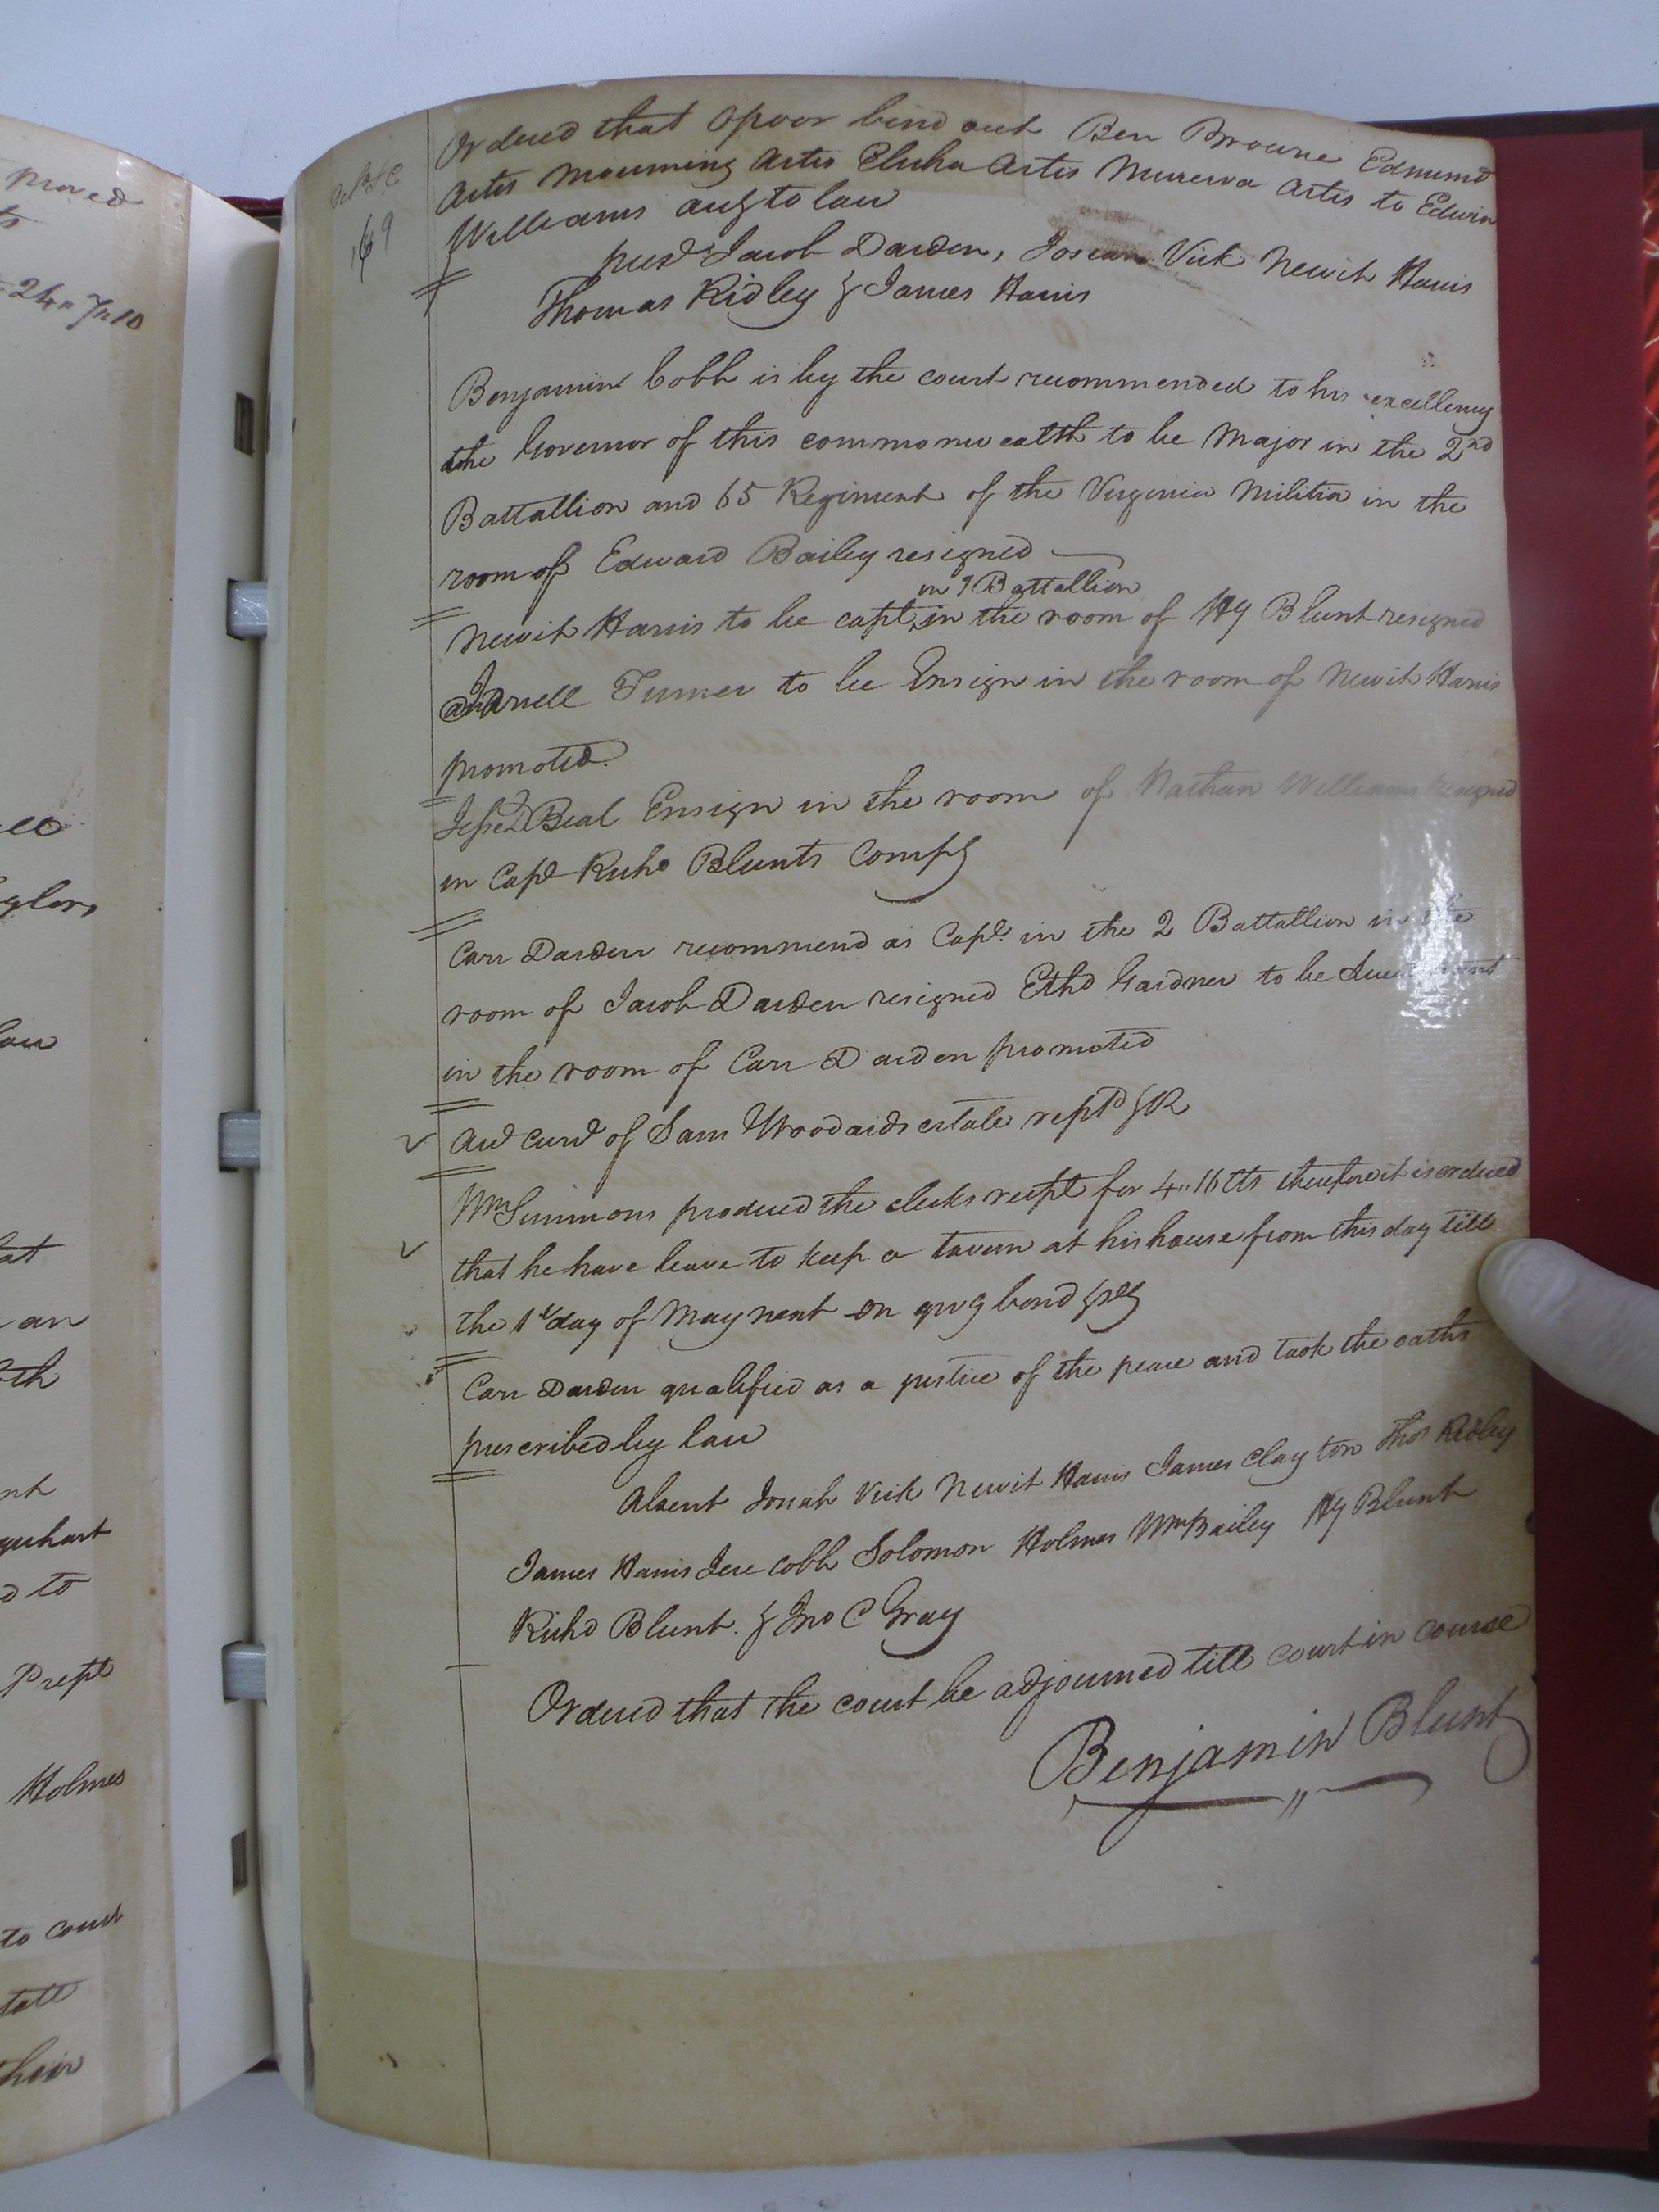 proved
ts
24 " 7 " 10
glers
law
at
an
th
nt
quhart
d to
Prest
Holmes
to court
tate
their
169
Ordered that Opoor bind out Ben Browne Edmund
Artis Mourning Artis Elisha Artis Minerva Artis to Edwin
Williams aug to law
presd Jacob Darden, Josiah Vick Newit Harris
Thomas Ridley & James Harris
Benjamin Cobb is by the court recommended to his excellency
the Governor of this commonwealth to be Major in the 2nd
Battallion and 65 Regiment of the Virginia Militia in the
room of Edward Bailey resigned
in 2 Battallion
Newit Harris to be capt in the room of Hy Blunt resigned
Turner to be Ensign in the room of Newit Harris
promoted.
Jesse Beal Ensign in the room of Nathan Williams resigned
in Capt Richd Blunts Compy
Carr Darden recommend as Capt. in the 2 Battallion in the
room of Jacob Darden resigned Ethd Gardner to be Lieutenant
in the room of Carr Darden promoted
Aud Curd of Sam Woodards estate rept & OR
Wm Simmons produced the clerks recept for 4 " 16 cts therefore it is ordered
that he have leave to keep a tavern at his house from this day till
the 1st day of May next on givg bond &
Carr Darden qualified as a justice of the peace and took the oaths
prescribed by law
Absent Josiah Vick Newit Harris James Clayton Thos Ridley
James Harris Jere Cobb Solomon Holmes Wm Bailey Hy Blunt
Richd Blunt. & Jno C Gray
Ordered that the court be adjourned till court in course
Benjamin Blunt